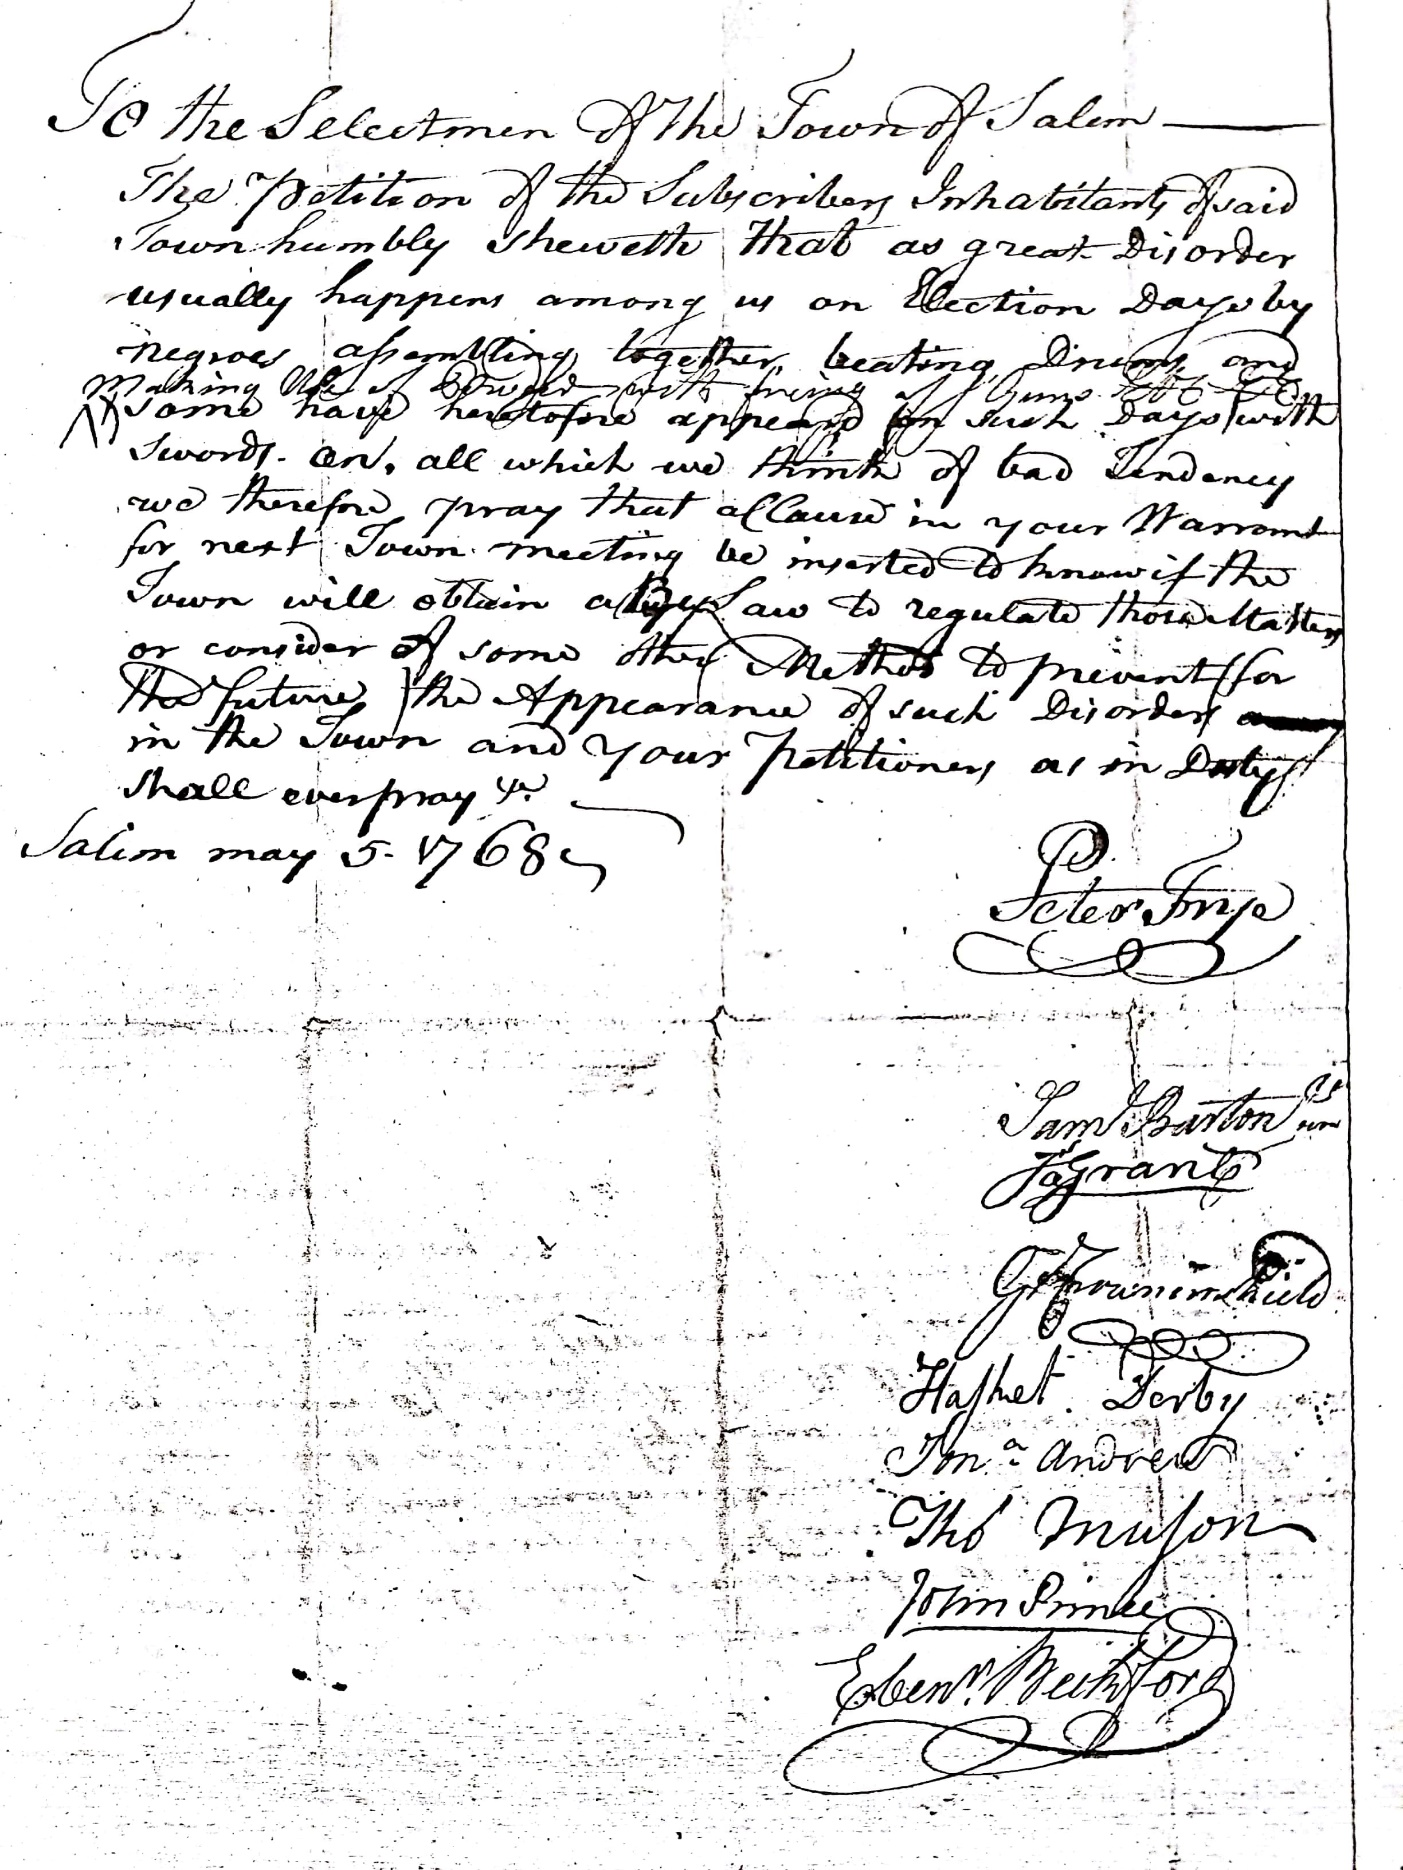 To the Selectmen of the Town of Salem
The Petition of the Subscribers Inhabitants of said
Town humbly sheweth that as great Disorder
usually happens among us on Election Days by
negroes assembling together, beating Drums, and
making Use of Powder with firing of Guns
some have heretofore appeared on such Days with
swords. all which we think of bad Tendency
we therefore pray that a Clause in your Warrant
for next Town meeting be inserted to know if the
Town will obtain a By Law to regulate those Matters
or consider of some other Method to prevent for
the future the Appearance of such Disorders
in the Town and your Petitioners as in Duty
shall ever pray &c.
Salem may 5. 1768
Peter Frye
Saml Barton Jun
Fs Grant
G Crowninshield
Hasket Derby
Jona Andrew
Tho Mason
John Prince
Ebenr. Beckford